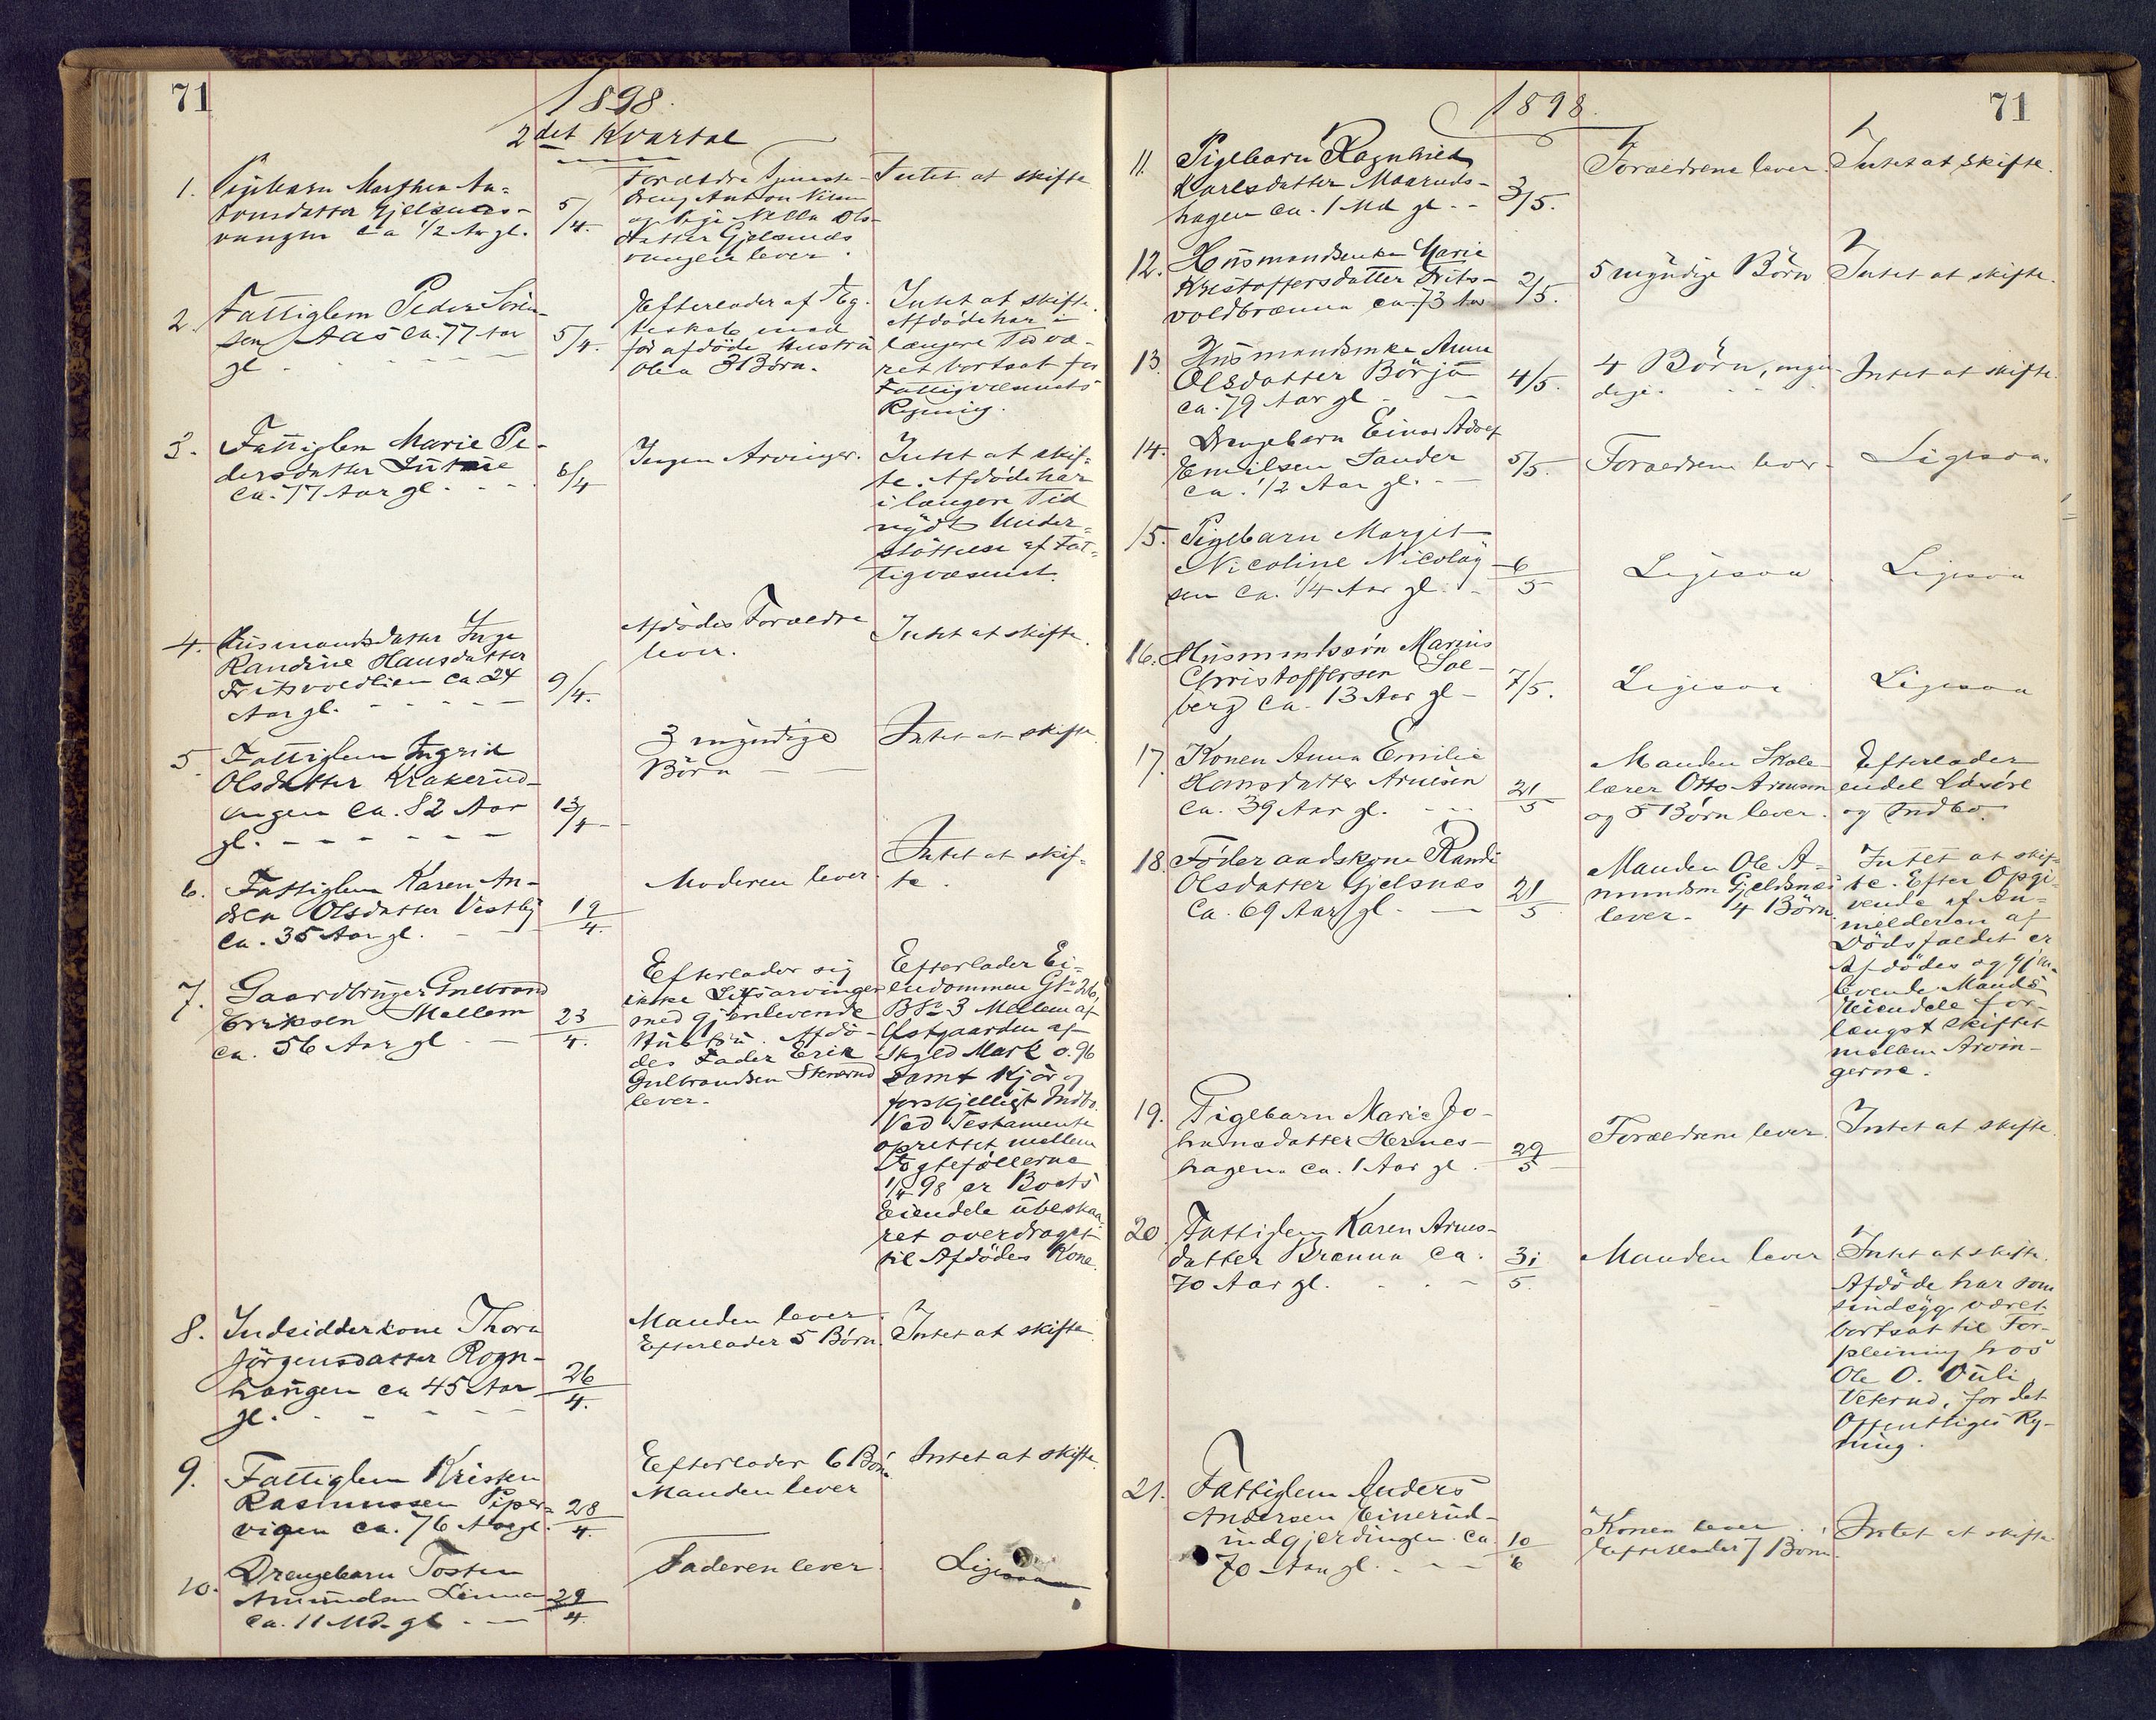 71
1898.
2det Kvartal
1. Pigebarn Marthea An=
tonsdatter Gjelsnæs-
vangen ca 1/2 Aar gl.
5/4.
Forældre Tjeneste-
dreng Anton Nilsen
og Pige Olls-
datter Gjelsnæs
vangen lever.
Intet at skifte
2. Fattiglem Peder Sören
sen Aas ca. 77 Aar
gl.
5/4.
Efterlader af Æg-
teskab med
för afdöde Hustru
Olea 3 Börn.
Intet at skifte.
Afdöde har i
længere Tid væ-
ret bortsat for
Fattigvæsenets
Regning.
3. Fattiglem Marie Pe-
dersdatter
ca. 77 Aar gl.
6/4
Ingen Arvinger.
Intet at skif=
te. Afdöde har
i længere Tid
nydt Under=
stöttelse af Fat=
tigvæsenet.
4. Husmandsdatter Inge
Randine Hansdatter
Fritsvoldlien ca 24
Aar gl.
9/4.
Afdödes Forældre
lever.
Intet at skifte.
5. Fattiglem Ingrid
Olsdatter Krakerud-
engen ca. 82 Aar
gl.
13/4
3 myndige
Börn
Intet at skifte.
6. Fattiglem Karen An-
drea Olsdatter Vestby
ca. 35 Aar gl.
19/4.
Moderen lever
Intet at skif=
te.
7. Gaardbruger Gulbrand
Eriksen Mellem
ca. 56 Aar gl
23/4.
Efterlader sig
ikke Livsarvinger
med gjenlevende
Hustru. Afdö-
des Fader Erik
Gulbrandsen Stenerud
lever.
Efterlader Ei=
endommen Gr 26,
Br 3 Mellem af
Østgaarden af
Skyld Mark 0.96
samt Kjör og
forskjelligt Indbo.
Ved Testamente
oprettet mellem
Ægtefællerne
1/4 98 er Boets
Eiendele ubeskaa=
ret overdraget
til Afdödes Kone.
8. Indsidderkone Thora
Jörgensdatter Rogn-
haugen ca 45 Aar
gl.
26/4.
Manden lever
Efterlader 5 Börn.
Intet at skifte
9. Fattiglem Kristen
Rasmussen Piper=
vigen ca. 76 Aar gl.
28/4.
Efterlader 6 Börn
Manden lever
Intet at skifte.
10. Drengebarn Tosten
Amundsen Linna
ca. 11 Md. gl
29/4.
Faderen lever.
Ligesaa
1898.
71
11. Pigebarn Ragnhild
Karlsdatter Maaruds-
hagen ca. 1 Md gl.
3/5.
Forældrene lever.
Intet at skifte.
12. Husmandsenke Marie
Kristoffersdatter Frits-
voldbrænna ca. 73 Aar
2/5.
5 myndige Börn
Intet at skifte.
13. Husmandsenke Anne
Olsdatter Börja
ca. 79 Aar gl
4/5.
4 Börn, myn-
dige.
Intet at skifte.
14. Drengebarn Einar Adolf
Emilsen Sander
ca. 1/2 Aar gl.
5/5.
Forældrene lever.
Ligesaa.
15. Pigebarn Margit
Nicoline Nicolay
sen ca. 1/4 Aar gl.
6/5
Ligesaa
Ligesaa
16. Husmandssön Marius
Christoffersen Sol-
berg ca. 13 Aar gl
7/5.
Ligesaa
Ligesaa
17. Konen Anna Emilie
Hansdatter Arnesen
ca. 39 Aar gl.
21/5
Manden Skole-
lærer Otto Arnesen
og 5 Börn lever.
Efterlader
endel Lösöre
og Indbo.
18. Föderaadskone Randi
Olsdatter Gjelsnæs
Ca. 69 Aar gl.
21/5
Manden Ole A-
mundsen Gjeldsnæs
lever. 4 Börn.
Intet at skif-
te. Efter Opgi-
vende af An=
melderen af
Dödsfaldet er
Afdödes og gjen=
levende Mands
Eiendele for-
længst skiftet
mellem Arvin-
gerne.
19. Pigebarn Marie Jo-
hansdatter Hernes-
hagen ca. 1 Aar gl.
29/5
Forældrene lever.
Intet at skifte.
20. Fattiglem Karen Arnes-
datter Brænna ca.
70 Aar gl.
31/5.
Manden lever
Intet at skifte.
Afdöde har som
sindsyg været
bortsat til For-
pleining hos
Ole O. Vuli
Veterud, for det
Offentliges Reg-
ning.
21. Fattiglem Anders
Andersen Einerud-
indgjerdingen. ca
70 Aar gl.
10/6
Konen lever.
Efterlader 7 Börn.
Intet at skifte